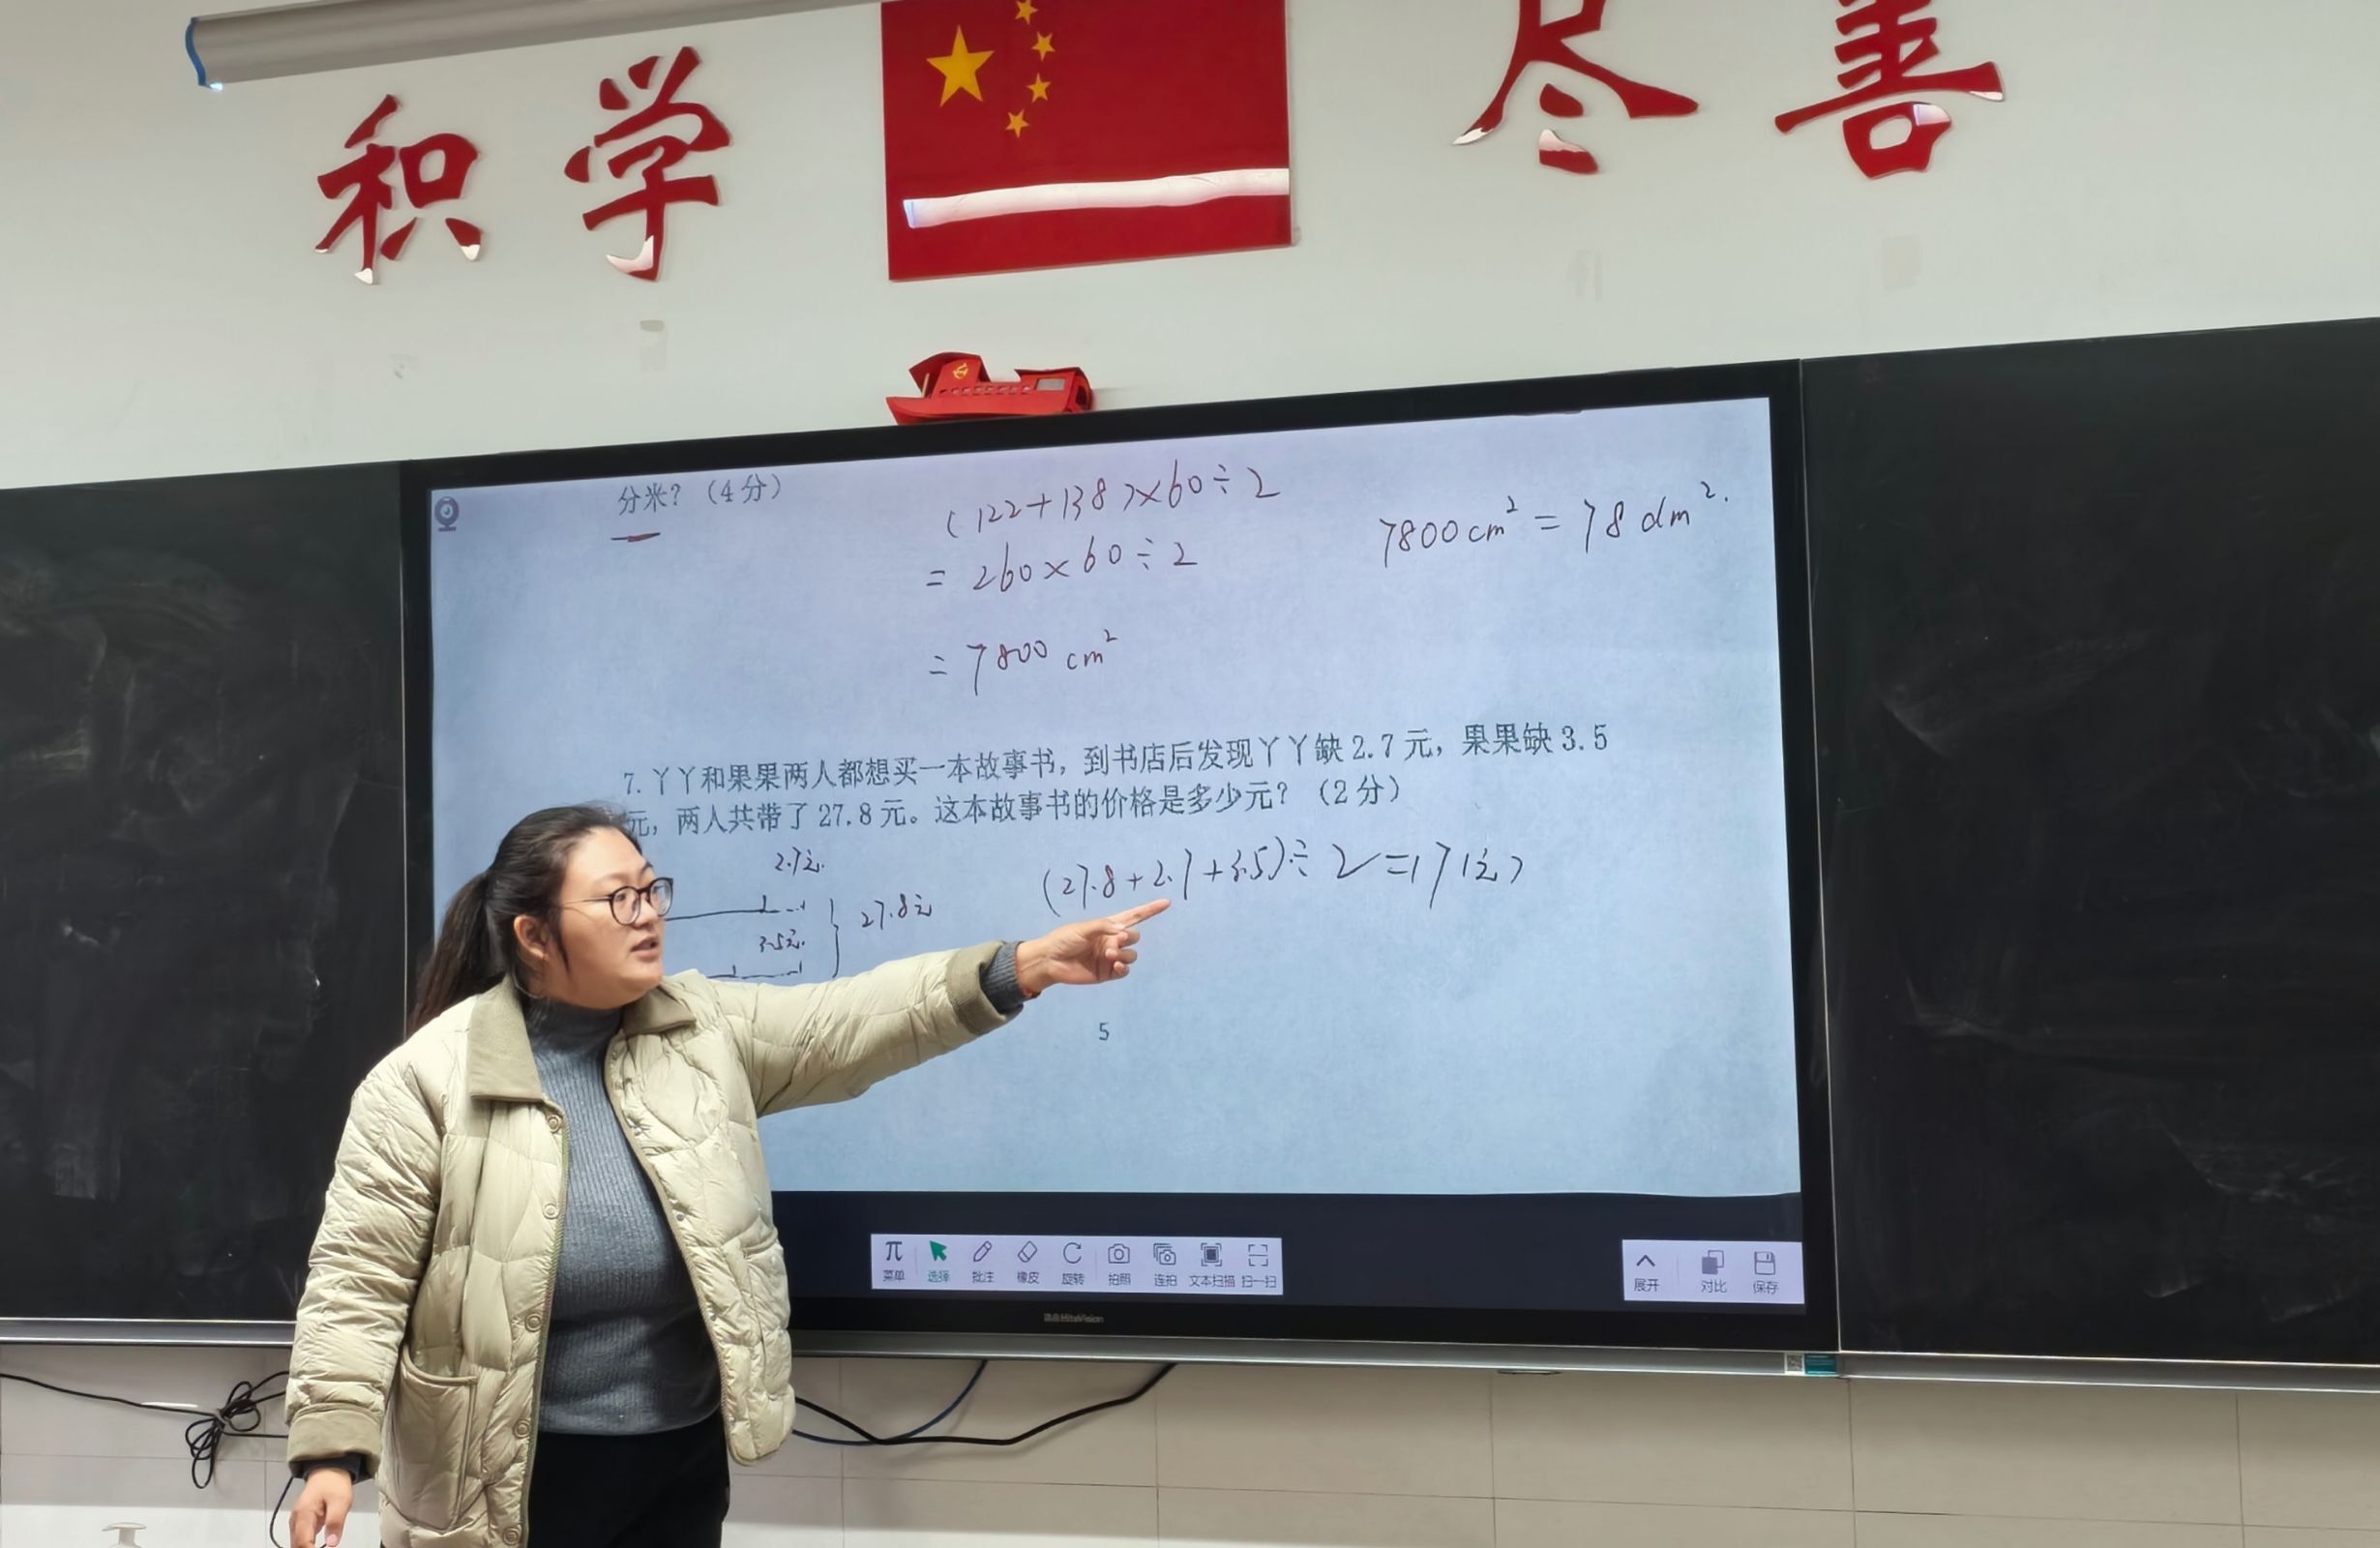 积学 尽善
分米？（4分）
(122+138)×60÷2
=260×60÷2
=7800 cm²
7800cm²=78dm².
7.丫丫和果果两人都想买一本故事书，到书店后发现丫丫缺2.7元，果果缺3.5
元，两人共带了27.8元。这本故事书的价格是多少元？（2分）
2.7元.
3.5元.
27.8元
(27.8+2.7+3.5)÷2=17(元)
5
菜单 选择 批注 橡皮 旋转 拍照 连拍 文本扫描 扫一扫
展开 对比 保存
HiteVision